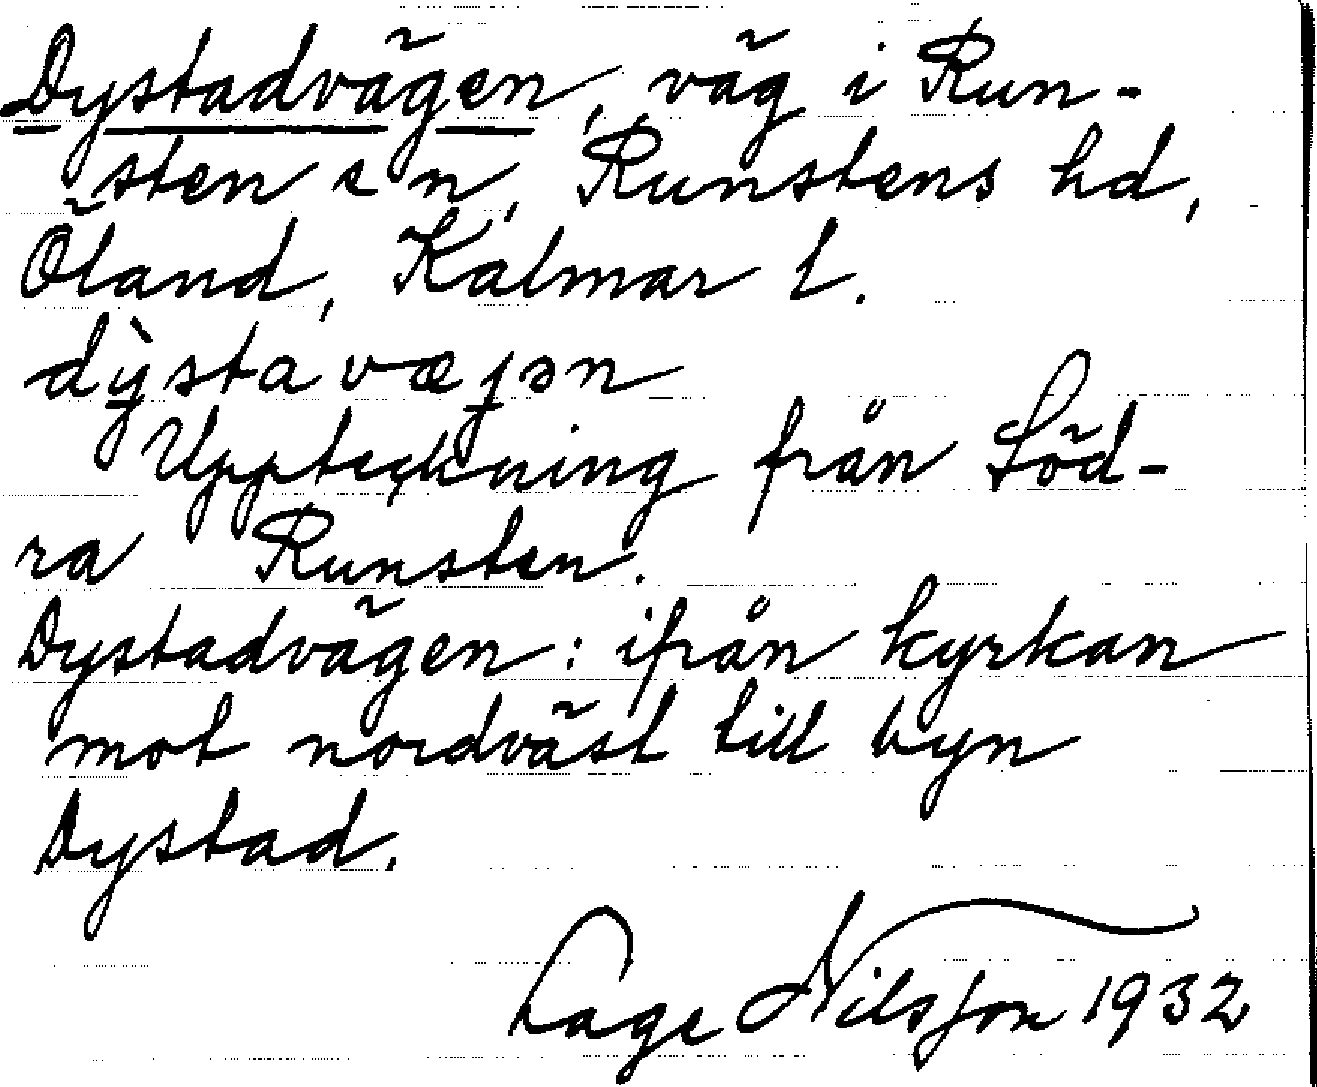 Dystadvägen, väg i Run-
sten sn, Runstens hd,
Öland, Kalmar l.
dỳstavæjən
Uppteckning från Söd-
ra Runsten.
Dystadvägen: ifrån kyrkan
mot nordväst till byn
Dystad.
Lage Nilsson 1932